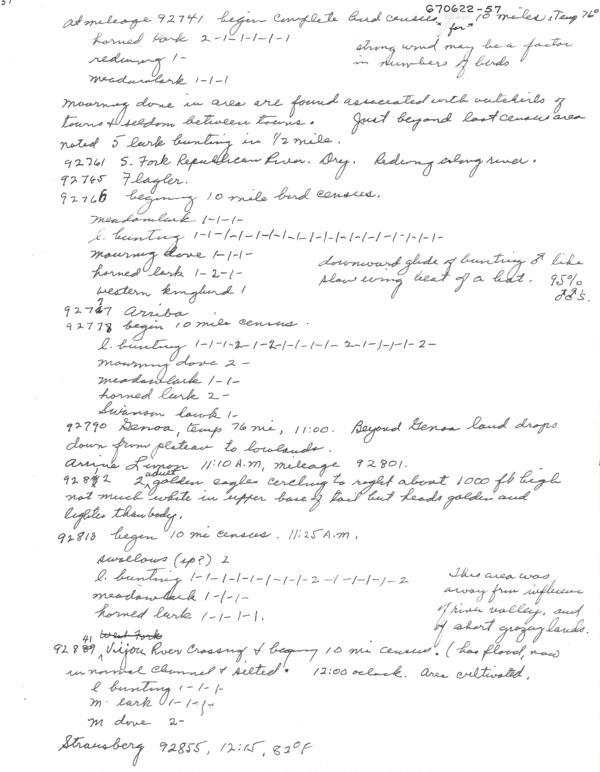 670622-57
At mileage 92741 begin complete bird census "for" 10 miles, Temp 76°
horned lark 2-1-1-1-1-1
strong wind may be a factor
in numbers of birds
redwing 1-
meadowlark 1-1-1
mourning dove in area are found associated with outskirts of
towns & seldom between towns. Just beyond last census area
noted 5 lark bunting in 1/2 mile.
92761 S. Fork Republican River. Dry. Redwing along river.
92765 Flagler.
92766 begining 10 mile bird census.
meadowlark 1-1-1-
l. bunting 1-1-1-1-1-1-1-1-1-1-1-1-1-1-1-1-1-1-
mourning dove 1-1-1-
horned lark 1-2-1-
western kingbird 1
downward glide of bunting ♂ like
slow wing beat of a bat. 95%
♂♂s.
Arriba
92778 begin 10 mile census.
l. bunting 1-1-1-2-1-2-1-1-1-1-2-1-1-1-1-2-
mourning dove 2-
meadowlark 1-1-
horned lark 2-
Swanson hawk 1-
92790 Genoa, temp 76 mi, 11:00. Beyond Genoa land drops
down from plateau to lowlands.
Arrive Limon 11:10 A.M, mileage 92801.
2 adult golden eagles circling to right about 1000 ft high
not much white in upper base of tail but heads golden and
lighter than body.
92813 begin 10 mi census. 11:25 A.M.
swallows (sp?) 2
l. bunting 1-1-1-1-1-1-1-1-1-2-1-1-1-1-2
meadowlark 1-1-1-
horned lark 1-1-1-1.
This area was
away from influence
of river valley, and
of short grazing lands.
West Fork
92841 Vijou River Crossing & begining 10 mi census. (has flood, now
in normal channel & silted. 12:00 oclock. Area cultivated.
l bunting 1-1-1-
m. lark 1-1-1-
m dove 2-
Strausberg 92855, 12:15, 82°F